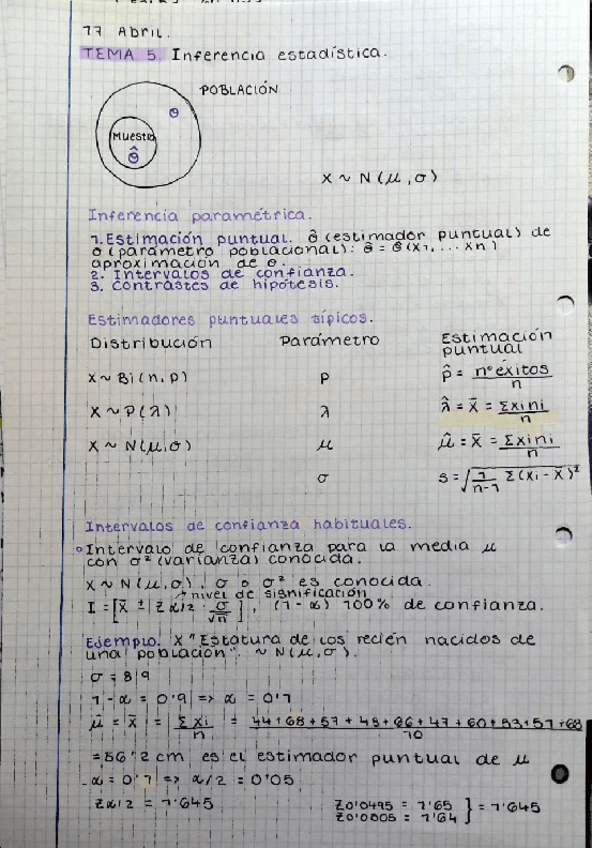 17 Abril.
TEMA 5. Inferencia estadística.
POBLACIÓN
θ
Muestra
θ̂
X ~ N(μ, σ)
Inferencia paramétrica.
1. Estimación puntual. θ̂ (estimador puntual) de
θ (parámetro poblacional): θ̂ = θ̂(x1, ... xn)
aproximación de θ.
2. Intervalos de confianza.
3. Contrastes de hipótesis.
Estimadores puntuales típicos.
Distribución Parámetro Estimación puntual
X ~ Bi(n, p) p p̂ = nº éxitos / n
X ~ P(λ) λ λ̂ = x̄ = Σxini / n
X ~ N(μ, σ) μ μ̂ = x̄ = Σxini / n
σ s = √(1/(n-1) Σ(xi - x̄)²)
Intervalos de confianza habituales.
Intervalo de confianza para la media μ
con σ² (varianza) conocida.
X ~ N(μ, σ), σ o σ² es conocida.
nivel de significación
I = [x̄ ± | zα/2 · σ/√n ], (1-α) 100% de confianza.
Ejemplo. X "Estatura de los recién nacidos de
una población". ~ N(μ, σ).
σ = 8'9
1 - α = 0'9 => α = 0'1
μ̂ = x̄ = Σxi / n = 44+68+57+48+66+47+60+53+57+68 / 10
=56'2 cm es el estimador puntual de μ
α = 0'1 => α/2 = 0'05
zα/2 = 1'645
z0'0495 = 1'65
z0'0505 = 1'64 } = 1'645